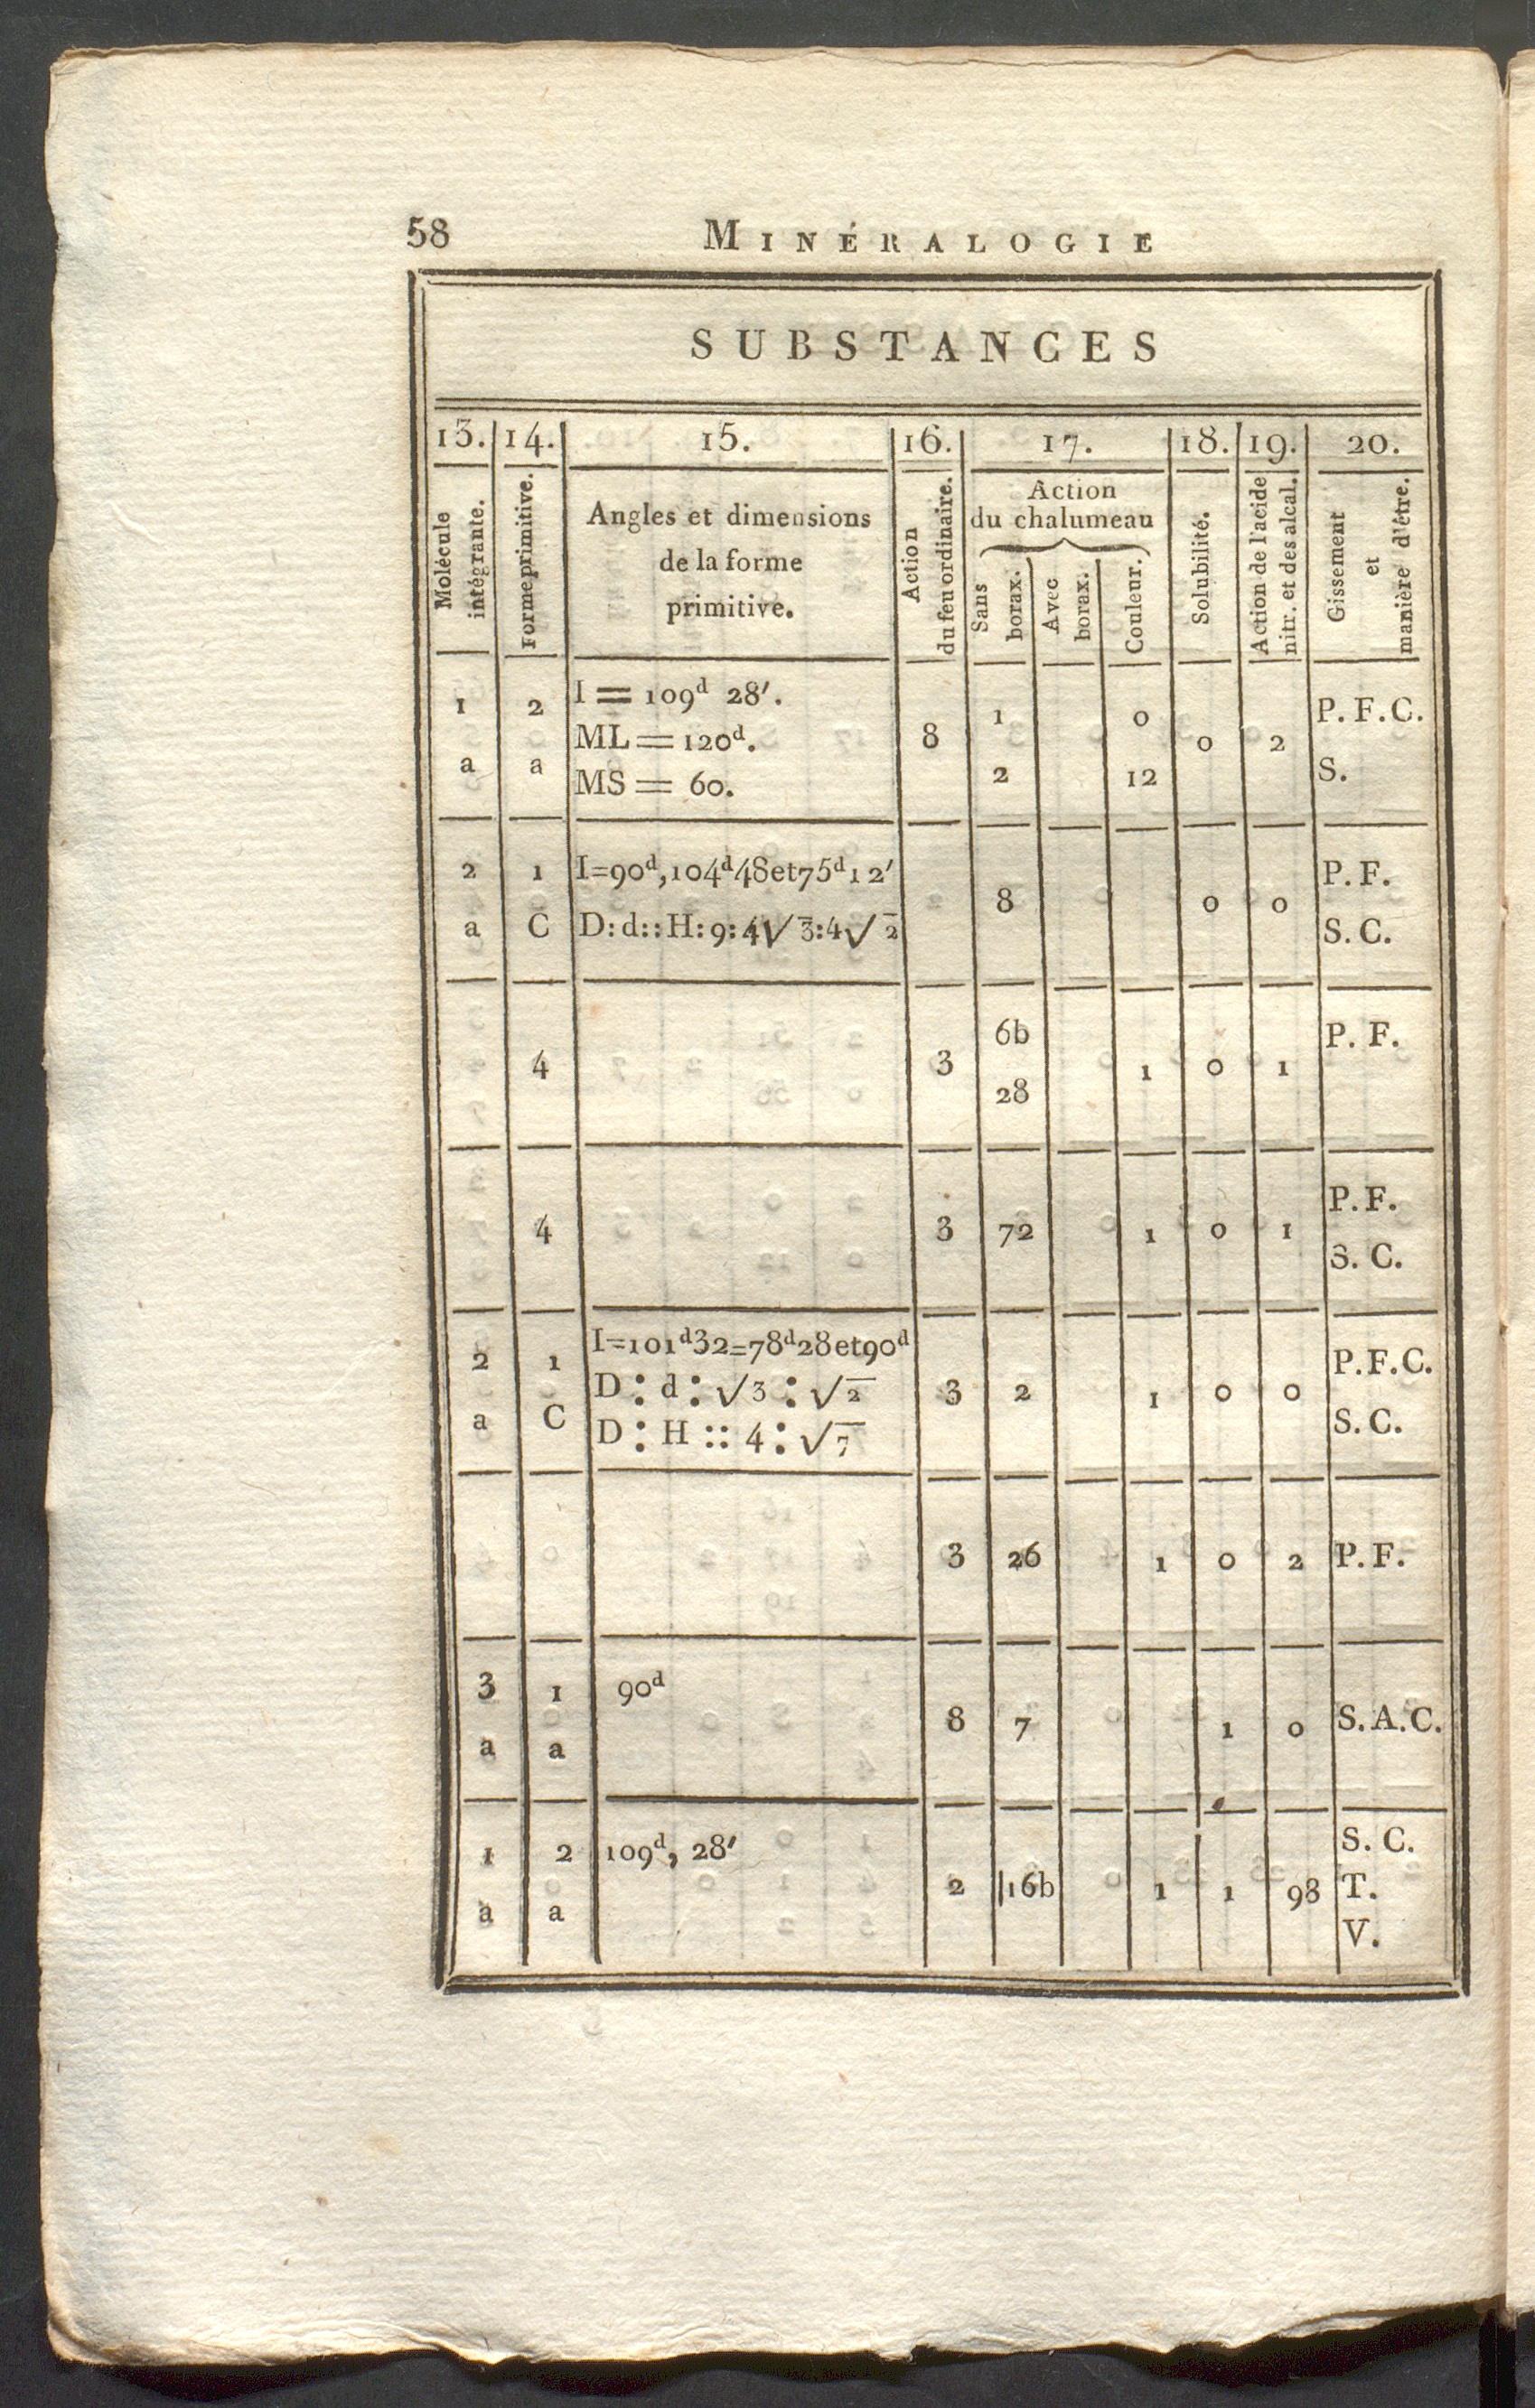 58 MINÉRALOGIE
SUBSTANCES
13. 14. 15. 16. 17. 18. 19. 20.
Molécule intégrante.
Forme primitive.
Angles et dimensions
de la forme
primitive.
Action du feu ordinaire.
Action
du chalumeau
Sans borax.
Avec borax.
Couleur.
Solubilité.
Action de l'acide nitr. et des alcal.
Gissement et manière d'être.
1 2 I = 109d 28'. 1 0 P. F. C.
ML = 120d. 8 0 2
a a MS = 60. 2 12 S.
2 1 I=90d,104d48et75d12' P. F.
8 0 0
a C D:d::H:9:4√3:4√2 S. C.
6b P. F.
4 3 1 0 1
28
P. F.
4 3 72 1 0 1
S. C.
2 1 I=101d32=78d28et90d P.F.C.
D : d : √3 : √2 3 2 1 0 0
a C D : H :: 4 : √7 S. C.
3 26 1 0 2 P. F.
3 1 90d
8 7 1 0 S.A.C.
a a
1 2 109d, 28' S. C.
2 16b 1 1 98 T.
a a V.